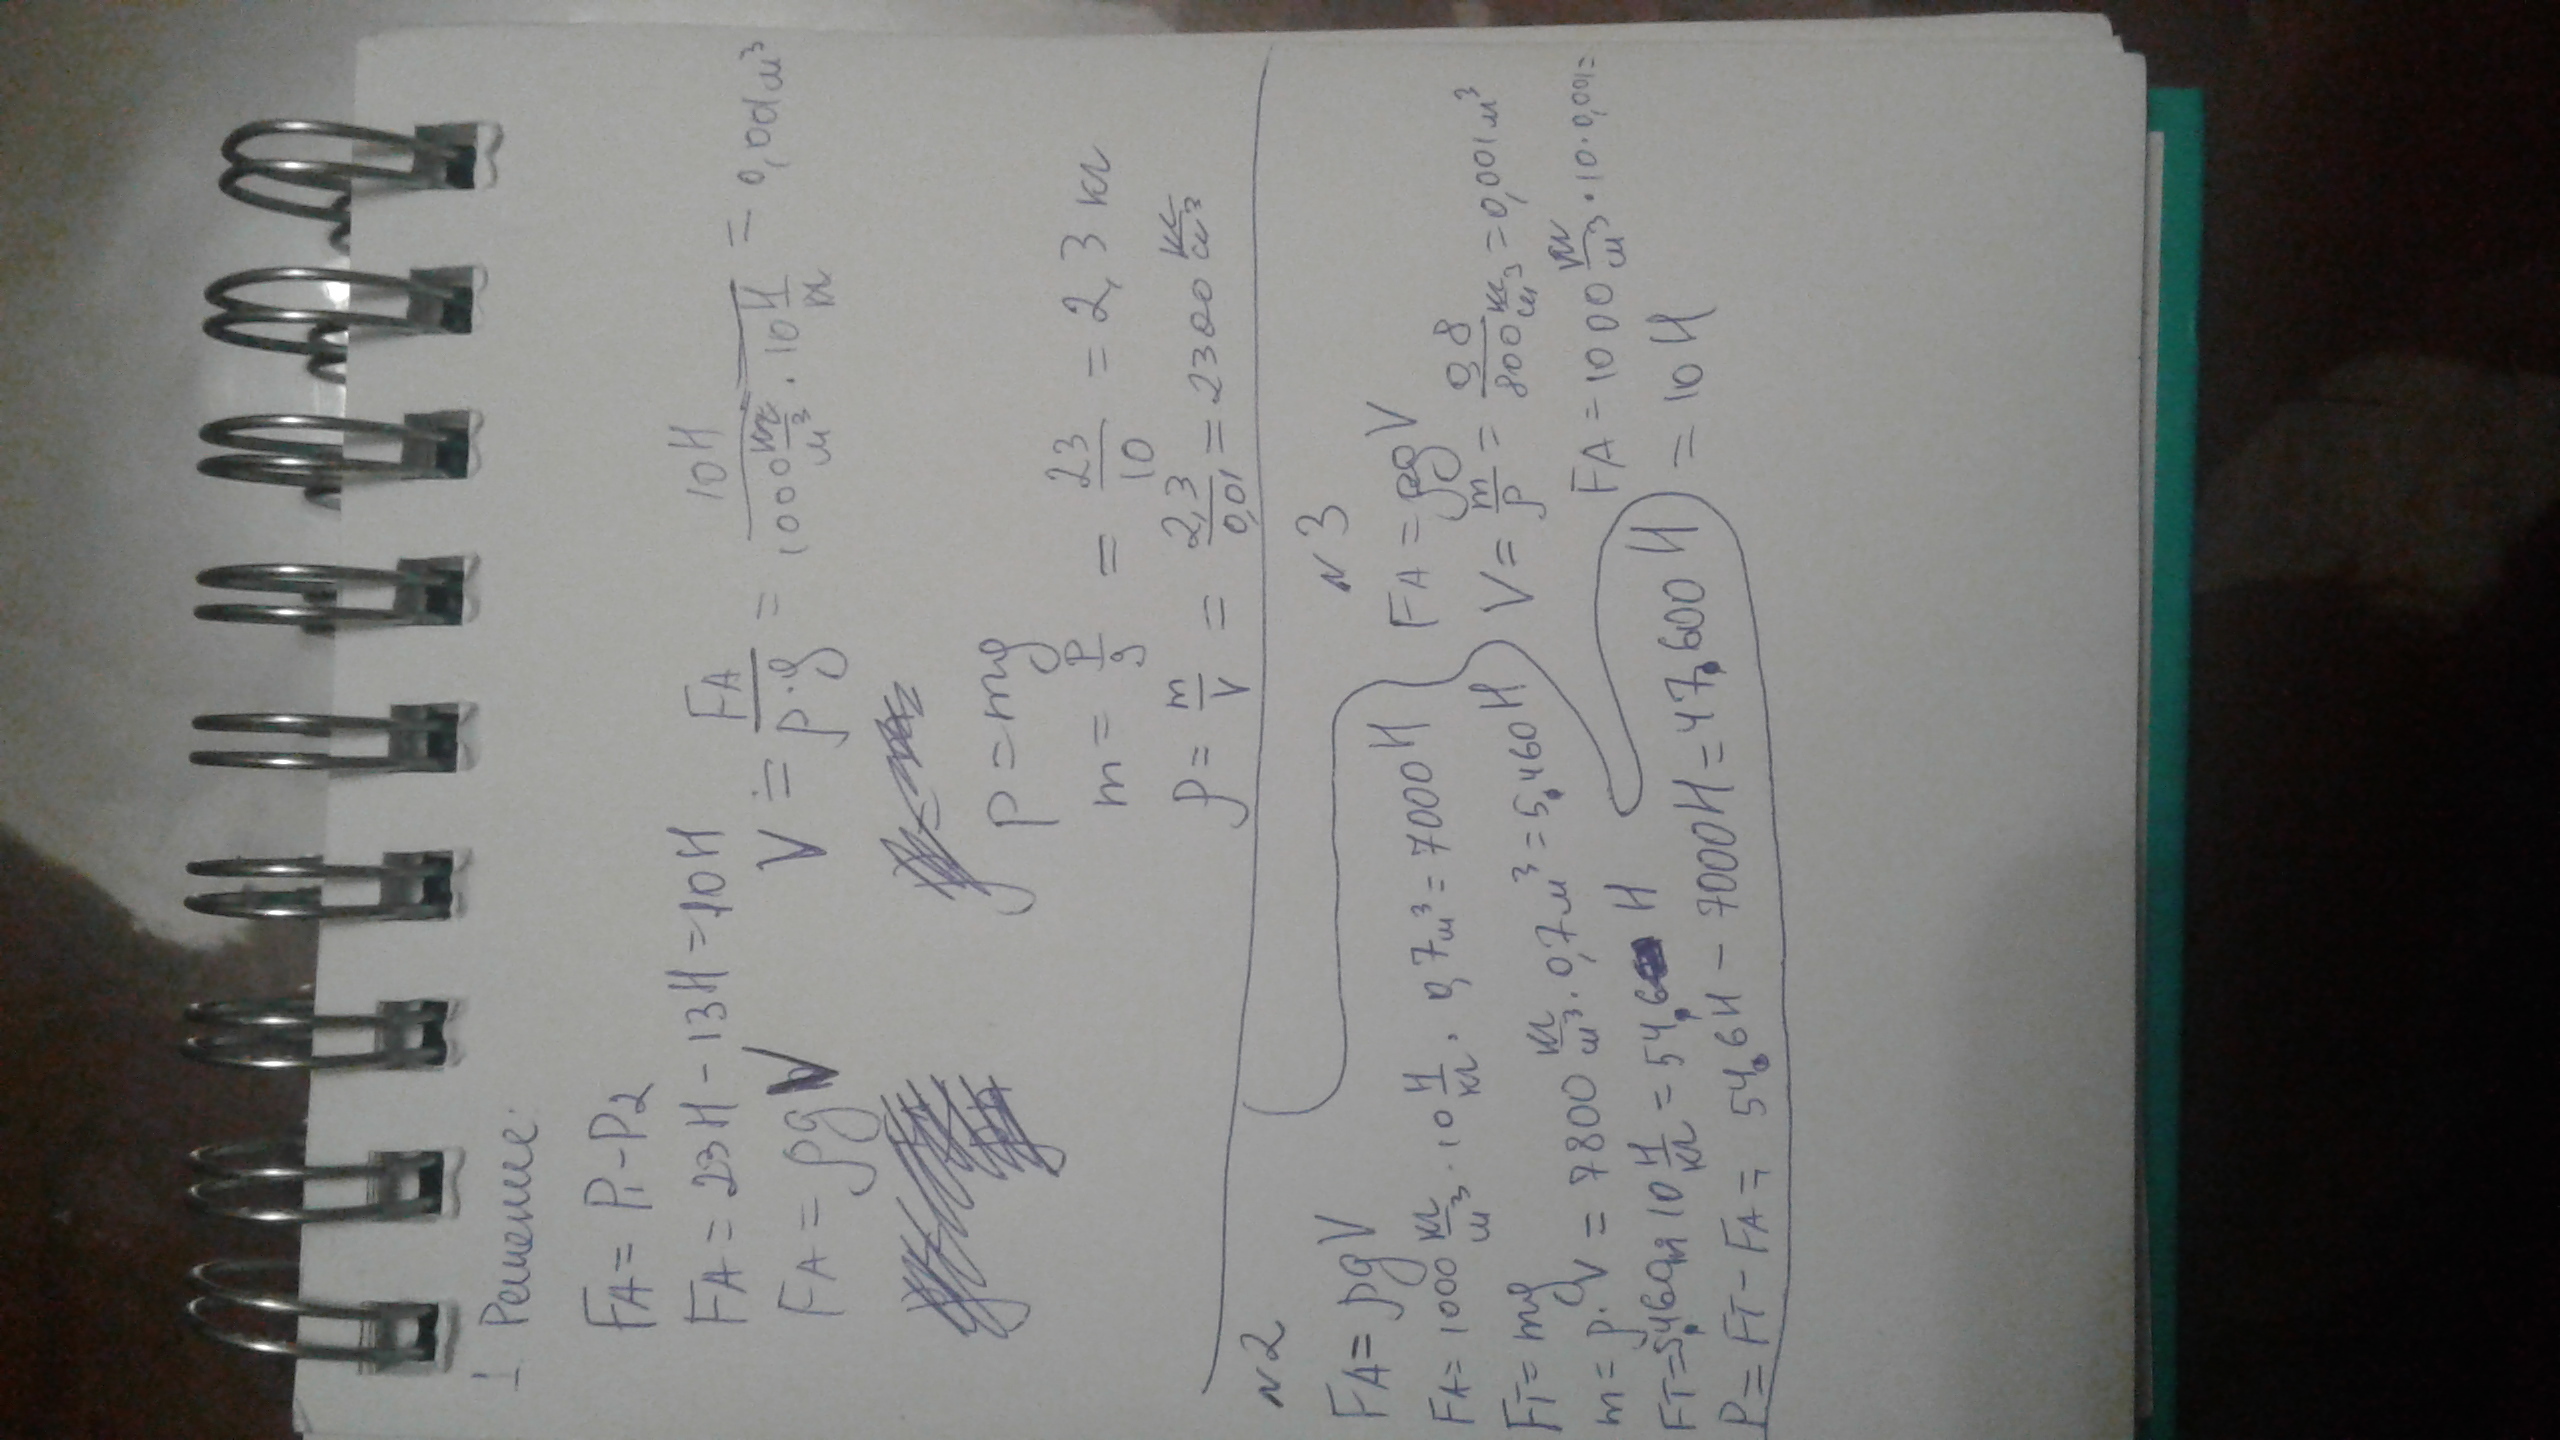 1 Решение:
FA = P1 - P2
FA = 23Н - 13Н = 10Н
FA = ρgV
V = FA/ρ·g = 10Н/1000 кг/м³ · 10 Н/кг = 0,001м³
P = mg
m = P/g = 23/10 = 2,3 кг
ρ = m/V = 2,3/0,01 = 2300 кг/м³
N2
FA = ρgV
FA = 1000 кг/м³ · 10 Н/кг · 0,7м³ = 7000Н
FT = mg
m = ρ·V = 7800 кг/м³ · 0,7м³ = 5,460Н
FT = 5,460 · 10 Н/кг = 54,6 Н
P = FT - FA = 54,6Н - 7000Н = 47,600 Н
N3
FA = ρgV
V = m/ρ = 0,8/800 кг/м³ = 0,001м³
FA = 1000 кг/м³ · 10 · 0,001 =
= 10Н